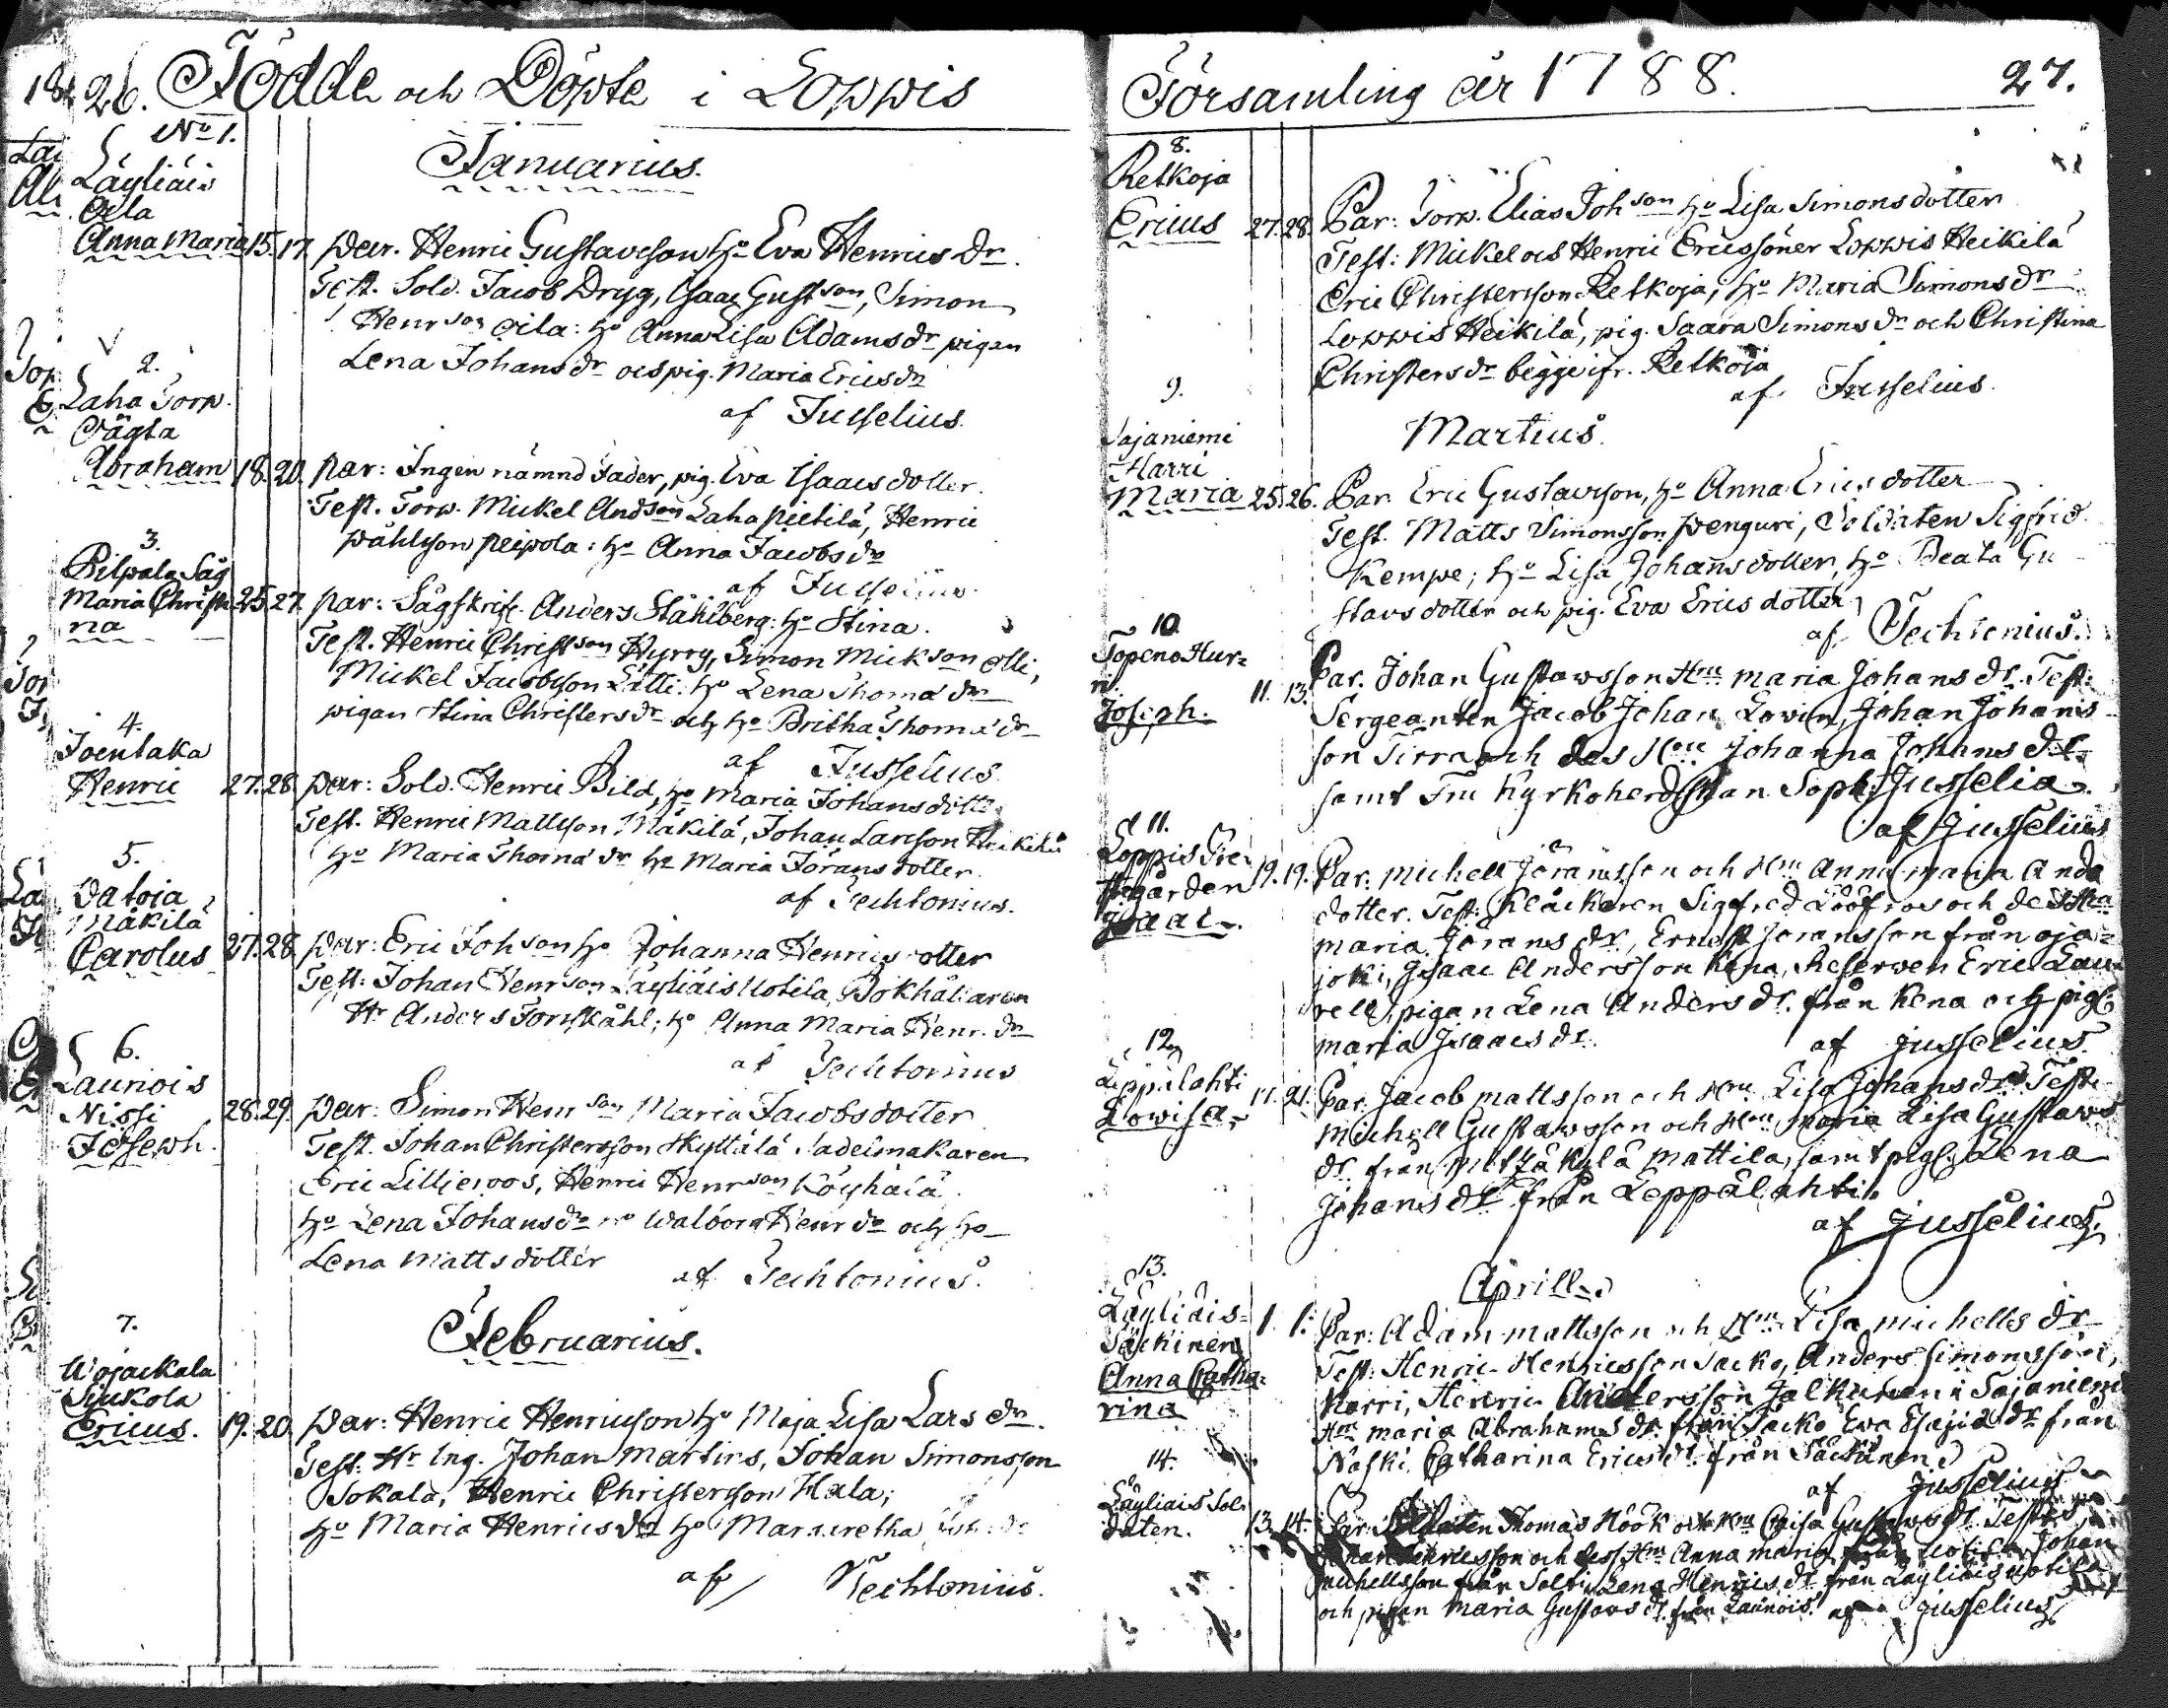 26. Födde och Döpte i Loppis
No 1.
Januarius.
Läyliäis
Oila
Anna Maria 15. 17. Par. Henric Gustavsson ho Eva Henrics dr.
Test. Sold. Jacob Dryg, Isaac Gustson, Simon
Henrson Oila: ho Anna Lisa Adams dr pigan
Lena Johans dr och pig. Maria Erics dr
af Jusselius.
2.
Laha Torp.
Abraham 18. 20. Par: Ingen nämnd Fader, pig. Eva Isaacs dotter.
Test. Torp. Mickel Andson Laha Pietilä, Henric
Påhlsson Peipola: ho Anna Jacobs dr
af Jusselius.
3.
Pilpala Såg
Maria Christi 25. 27. Par: Sågskrifv. Anders Ståhlberg: ho Stina.
na
Test. Henric Christson Hyrry, Simon Mickson Olli,
Mickel Jacobsson Lilli: ho Lena Thoma dr
pigan Stina Christers dr och ho Britha Thoma dr
af Jusselius.
4.
Joentaka
Henric 27. 28. Par: Sold. Henric Bild, ho Maria Johans dotter
Test. Henric Mattsson Mäkilä, Johan Larsson Heikilä
ho Maria Thoma dr ho Maria Jörans dotter.
af Techtonius.
5.
Mäkilä
Carolus 27. 28. Par: Eric Johson ho Johanna Henrics dotter
Test: Johan Henrson Läyliäis Uotila, Bokhållaren
Hr Anders Forsskåhl; ho Anna Maria Henr. dr
af Techtonius
6.
Launois
Nissi 28. 29. Par: Simon Henrson Maria Jacobs dotter
Josewh.
Test. Johan Christersson Skyttälä Sadelmakaren
Eric Lilljeroos, Henric Henrson Köyhälä
ho Lena Johans dr ho Walborg Henr dr och ho
Lena Matts dotter
af Techtonius.
Februarius.
7.
Wojackala
Siukola
Ericus. 19. 20. Par: Henric Henricsson ho Maja Lisa Lars dr.
Test: Hr Ing. Johan Martins, Johan Simonsson
Sokala, Henric Christersson Hala;
ho Maria Henrics dr ho Margretha
af Techtonius.
Församling år 1788. 27.
8.
Retkoja
Ericus 27. 28. Par: Torp. Elias Johson ho Lisa Simons dotter
Test: Mickel och Henric Ericssöner Loppis Heikilä
Eric Christersson Retkoja; ho Maria Simons dr
Loppis Heikilä, pig. Saara Simons dr och Christina
Christers dr begge ifr. Retkoja
af Jusselius.
9.
Martius.
Sajaniemi
Harri
Maria 25. 26. Par Eric Gustavsson, ho Anna Erics dotter
Test. Matts Simonsson Penguri, Soldaten Sigfrid
Kempe; ho Lisa Johans dotter, ho Beata Gu
stavs dotter och pig. Eva Erics dotter
af Techtonius.
10.
Topeno Hur=
ri.
Joseph. 11. 13. Par. Johan Gustawsson Hru maria Johans dr. Test:
Sergeanten Jacob Johan Lovin, Johan Johans
son Tirra och des Hru Johanna Johans dr
samt Fru Kyrkoherdskan Soph: Jusselia
af Jusselius
11.
Loppis Pre=
stgården 19. 19. Par: michell Jöransson och Hru Anna maria Anda
Isaac.
dotter. Test: Klåckaren Sigfred Lööfroos och dess Hru
maria Jörans dr, Ernst Joransson från oja=
joki, Isaac Andersson Kena, Reserven Eric Lau
rell, pigan Lena Anders dr från Kena och pig:
maria Isaacs dr.
af Jusselius
12.
Leppälahti
Lowisa. 17. 21. Par: Jacob mattsson och Hru Lisa Johans dr Test:
Michell Gustawsson och Hru maria Lisa Gustaws
dr från Metzäkylä mattila, samt pigl: Lena
Johans dr från Leppälahti.
af Jusselius.
Aprill.
13.
Läyliäis=
Säckinen 1. 1. Par: Adam mattsson och Hru Lisa michells dr
Anna Catha=
rina
Test: Henric Henricsson Säcko, Anders Simonsson,
Harri, Henric Andersson Jalkanen i Sajaniemi
Hru maria Abrahams dr från Säcko Eva Esajæ dr från
Näski Catharina Erics dr från Säckinen
af Jusselius
14.
Läyliäis Sol=
daten. 13. 14. Par: Soldaten Thomas Höök och Hru Caisa Gustaws dr Test:
Johan Henricsson och dess Hru Anna maria från Uotila Johan
michellsson från Solti, Lena Henrics dr från Läyliäis Uotila
och pigan Maria Gustavs dr från Launois. af Jusselius